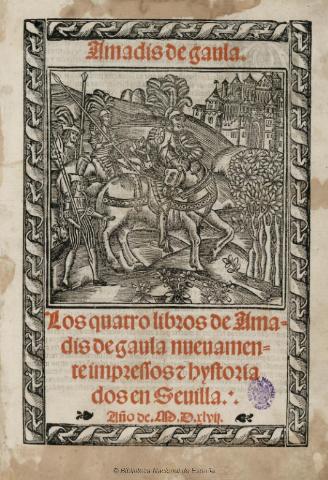 Amadis de gaula.
Los quatro libros de Ama-
dis de gaula nueuamen-
te impressos ⁊ hystoria
dos en Seuilla.
Año de. M. D. xlvij.
© Biblioteca Nacional de España